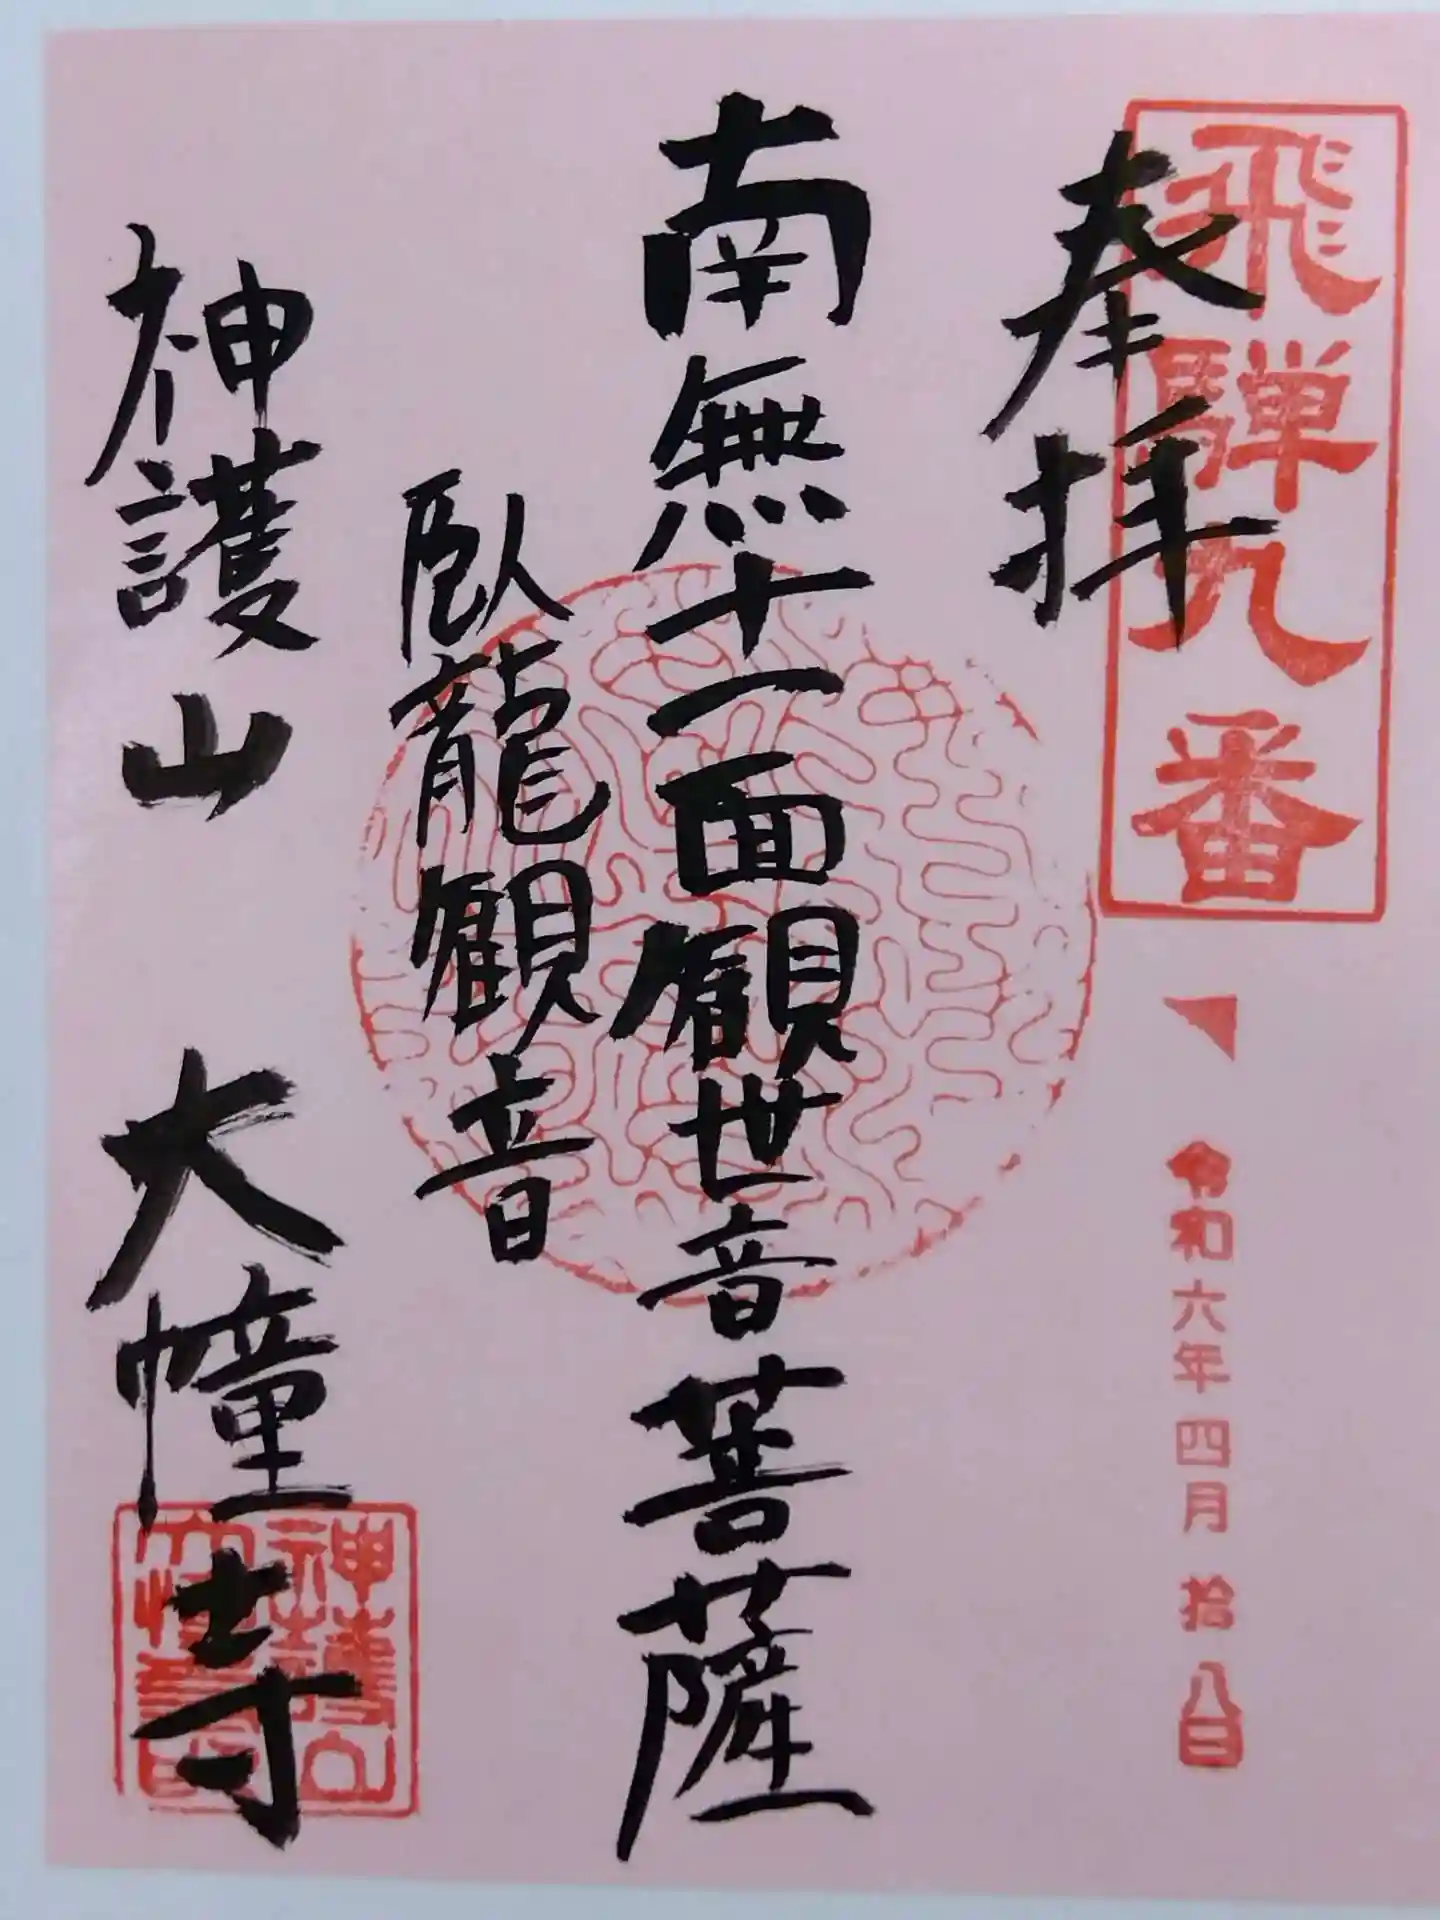 飛騨九番
奉拝
令和六年四月拾八日
南無十一面観世音菩薩
臥龍観音
神護山 大幢寺